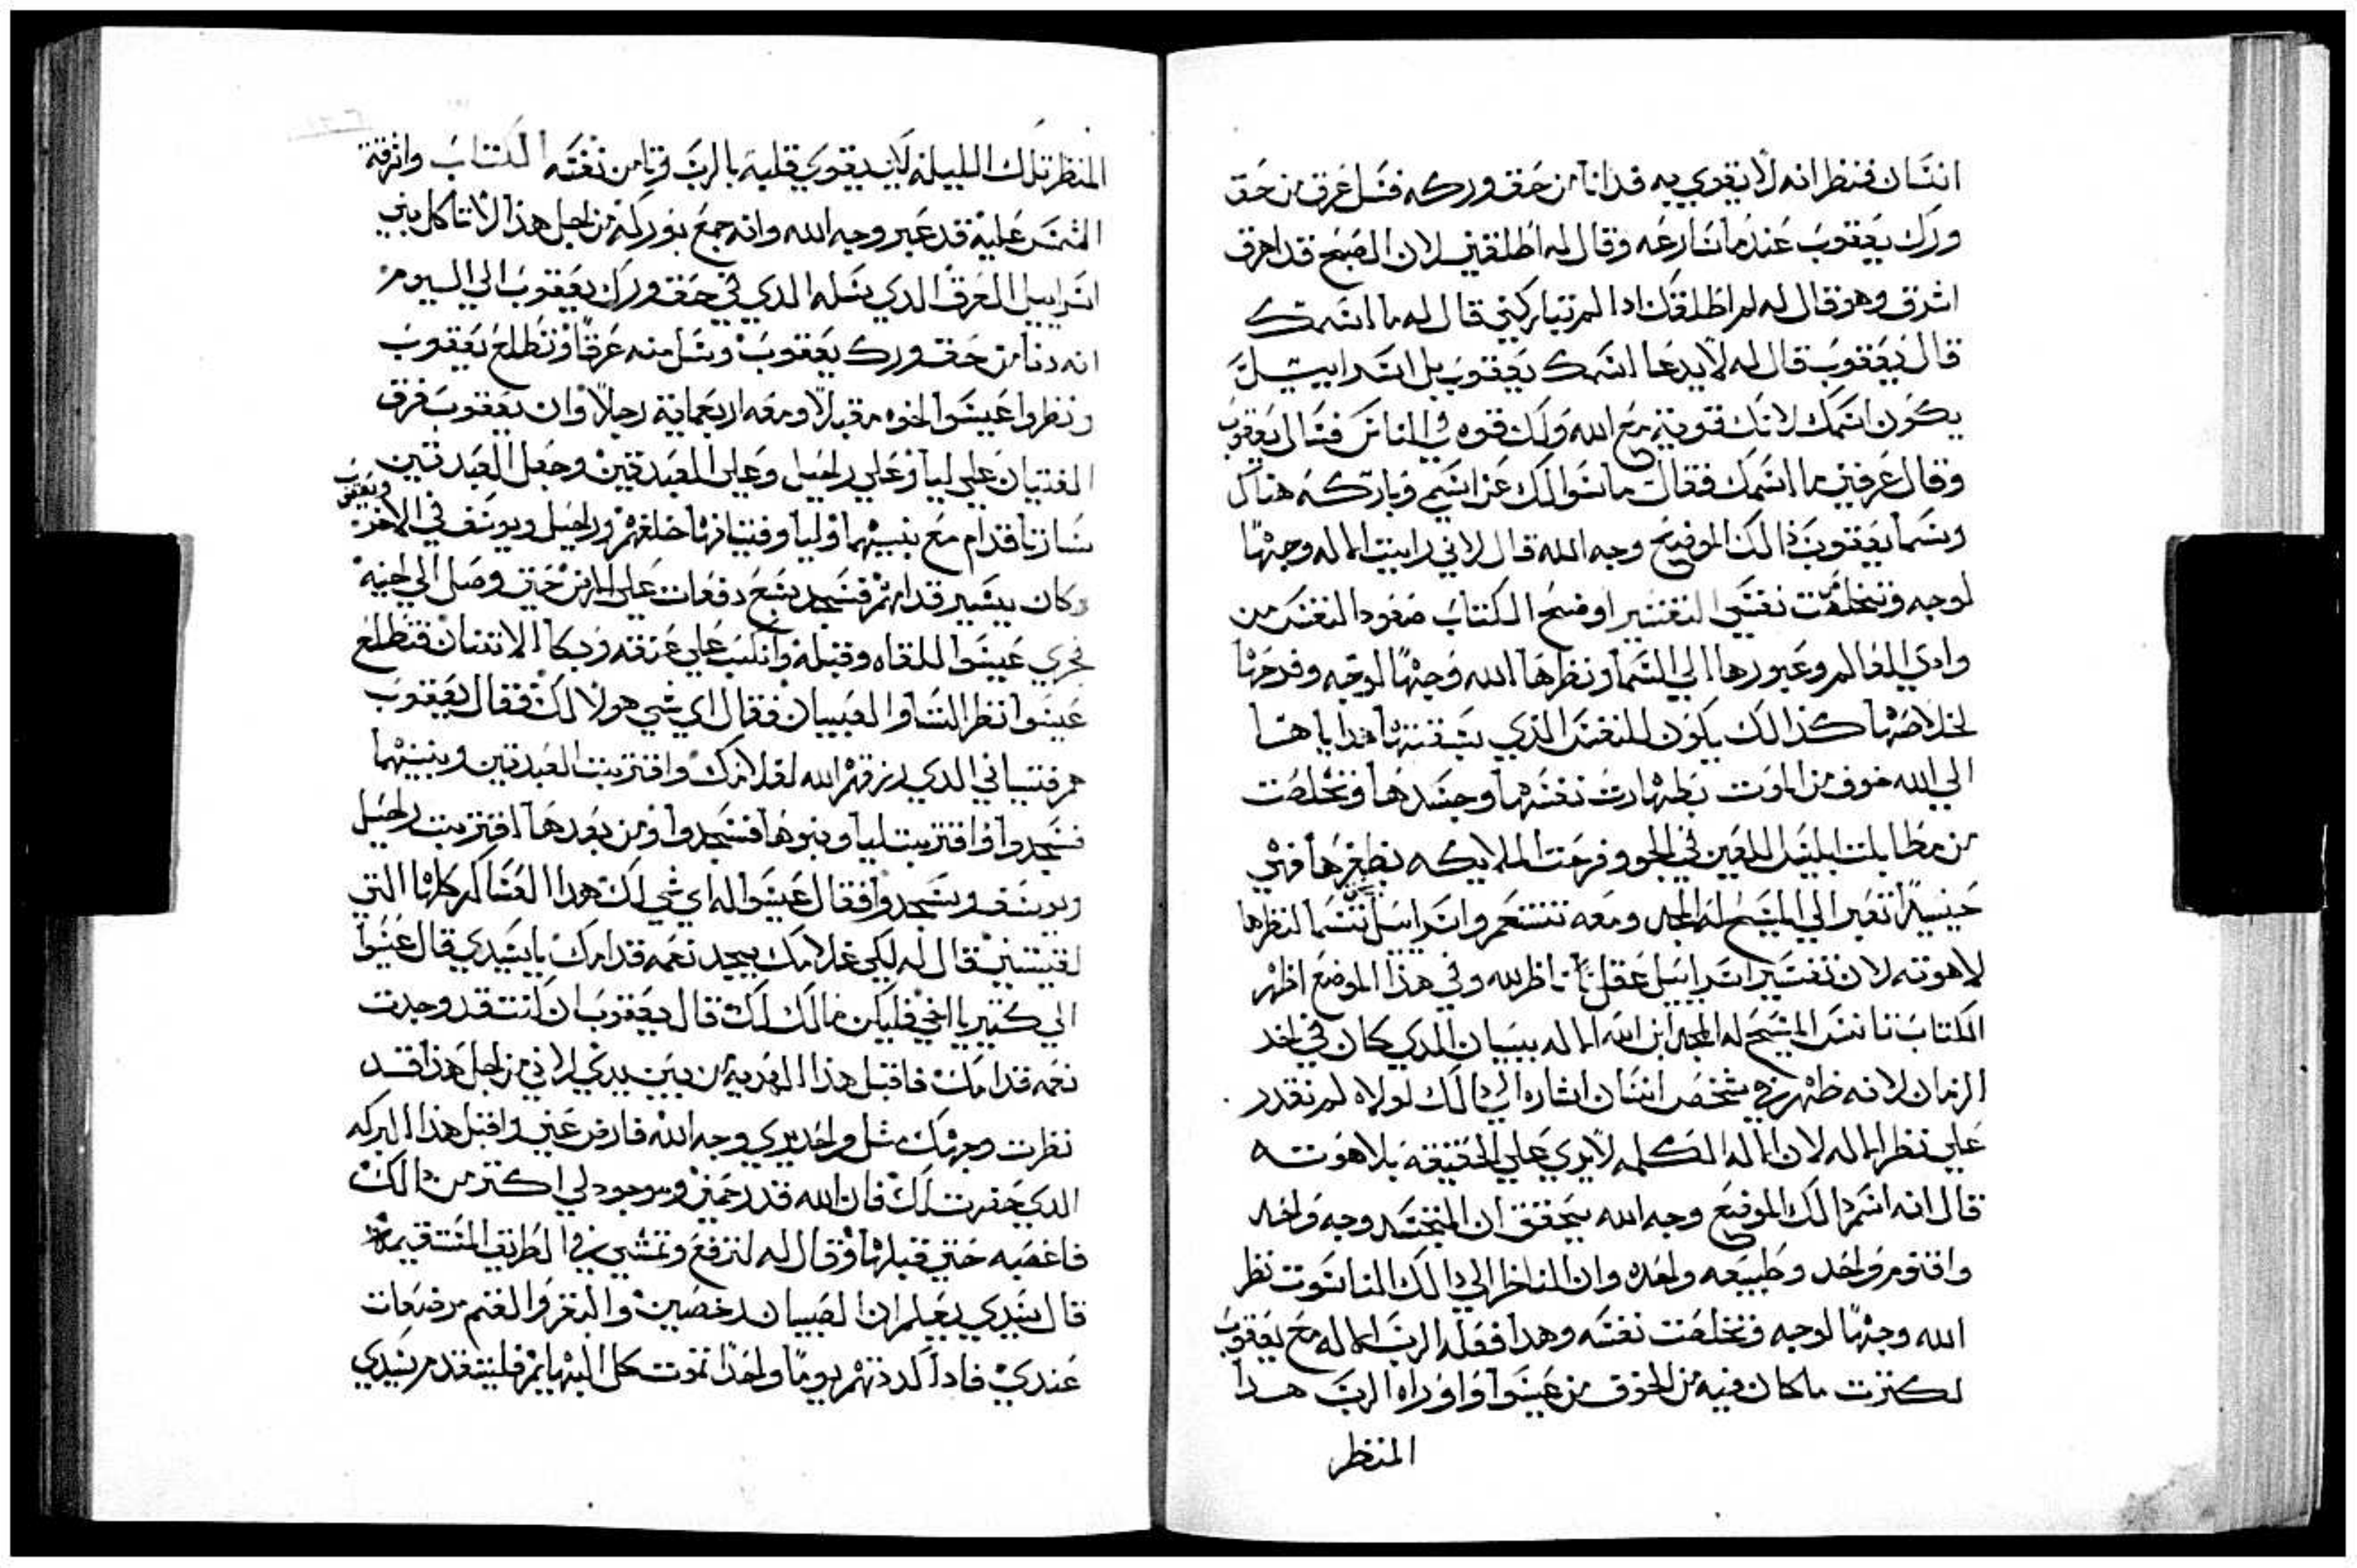 انسان فنظر انه لا يقوي به فدانا من حق وركه فسل عرق من حق
ورك يعقوب عندما سارعه وقال له اطلقني لان الصبح قد اهرق
اشرق وهو قال له لم اطلقك ادا لم تباركني قال له ما اسمك
قال يعقوب قال له لا يدعا اسمك يعقوب بل اسراييل
يكون اسمك لانك قويت مع الله ولك قوه في الناس فسال يعقوب
وقال عرفني ما اسمك فقال ما سوالك عن اسمي وباركه هناك
وسما يعقوب ذالك الموضع وجه الله قال لاني راييت الاله وجهًا
لوجه وتخلصت نفسي التفسير اوضح الكتاب صعود النفس من
وادي العالم وعبورها الي السما ونظرها الله وجهًا لوجه وفرحها
لخلاصها كذالك يكون للنفس الذي يشقتها هدايا هنا
الي الله خوف من الموت بطهارت نفسها وجسدها وتخلصت
من مطالبت ابليس اللعين في الجو وفرحت الملايكه بظفرها فهي
حينيدًا تعبر الي المسيح له المجد ومعه تتنعم واسراييل تتسما لنظرها
لاهوته لان تفسير اسراييل عقل ناظر لله وفي هذا الموضع اظهر
الكتاب تانس المسيح له المجد ابن الله الاله ببيان الدي كان في اخر
الزمان لانه ظهر في شخص انسان اشاره الي ذالك لولاه لم نقدر
علي نظر الاله لان الاله الكلمه لا يري علي الحقيقه بلاهوته
قال انه اسم ذالك الموضع وجه الله يتحقق ان المتجسد وجه واحد
واقنوم واحد وطبيعه واحده وان الناظر الي ذالك الناسوت نظر
الله وجهًا لوجه وتخلصت نفسه وهدا فعله الرب الاله مع يعقوب
لكترت ما كان فيه من الخوف من عيسوا واوراه الرب هدا
المنظر
المنظر تلك الليله لان يقوي قلبه بالرب قربا من نفسه الكتاب واشرقة
الشمس عليه قد عبر وجه الله وانه جمع بوركه من اجل هذا لا تاكل بني
اسراييل العرق الدي سله الدي في حق ورك يعقوب الي اليوم
انه دنا من حق ورك يعقوب وسل منه عرقًا وتطلع يعقوب
ونظروا عيسوا اخوه مقبلًا ومعه اربعماية رجلًا وان يعقوب فرق
الفتيان علي ليا وعلي راحيل وعلي العبدتين وجعل العبدتين
سارتا قدام مع بنيهما وليا وفتيانها خلفهم وراحيل ويوسف في الاخر ويعقوب
وكان يسير قدامهم فسجد سبع دفعات علي الارض حتي وصل الي اخيه
فجري عيسوا للقاه وقبله وانكب علي عنقه وبكا الاتنان فتطلع
عيسوا نظر النسا والصبيان فقال اي شي هولا لك فقال يعقوب
هم فتياني الدي رزقهم الله لغلامك واقتربت العبدتين وبنيهما
فسجدوا واقتربت ليا وبنوها فسجدوا ومن بعدها اقتربت راحيل
ويوسف وسجدوا فقال عيسوا له اي شي لك هدا العساكر كلها التي
لقيتني قال له لكي غلامك يجد نعمه قدامك يا سيدي قال عيسوا
الي كتير يا اخي فليكن مالك لك قال يعقوب ان كنت قد وجدت
نعمه قدامك فاقبل هذا الهديه من بين يدي لاني من اجل هذا قد
نظرت وجهك متل واحد يري وجه الله فارض عني واقبل هدا البركه
الدي حضرت لك فان الله قد رحمني وموجود لي اكتر من ذالك
فاغصبه حتي قبلها وقال له لنرفع ونمشي في الطريق المستقيمه
قال سيدي يعلم ان الصبيان رخصين والبقر والغنم مرضعات
عندي فادا كددتهم يومًا واحدًا تموت كل البهايم فليتقدم سيدي